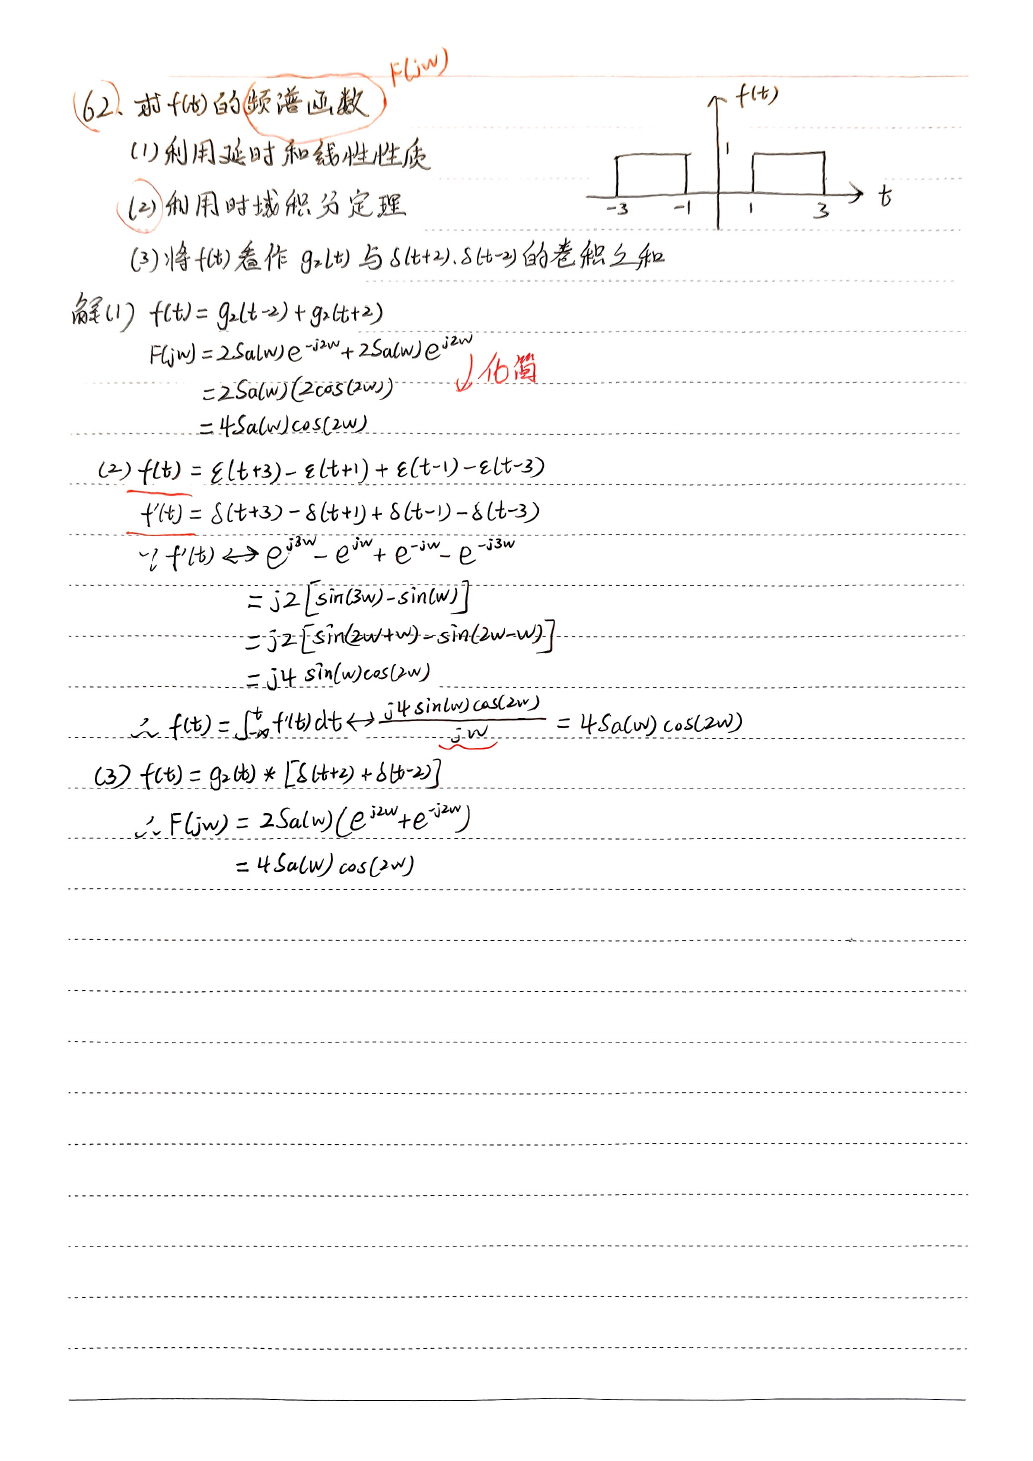 F(jw)
62、求f(t)的频谱函数
(1)利用延时和线性性质
(2)利用时域积分定理
(3)将f(t)看作 g₂(t) 与 δ(t+2)、δ(t-2)的卷积之和
f(t)
1
-3 -1 1 3 t
解(1) f(t) = g₂(t-2) + g₂(t+2)
F(jw) = 2Sa(w)e^{-j2w} + 2Sa(w)e^{j2w}
= 2Sa(w)(2cos(2w)) 化简
= 4Sa(w)cos(2w)
(2) f(t) = ε(t+3) - ε(t+1) + ε(t-1) - ε(t-3)
f'(t) = δ(t+3) - δ(t+1) + δ(t-1) - δ(t-3)
∵ f'(t) ↔ e^{j3w} - e^{jw} + e^{-jw} - e^{-j3w}
= j2[sin(3w) - sin(w)]
= j2[sin(2w+w) - sin(2w-w)]
= j4 sin(w)cos(2w)
∴ f(t) = ∫_{-∞}^{t} f'(t)dt ↔ \frac{j4 sin(w)cos(2w)}{jw} = 4Sa(w)cos(2w)
(3) f(t) = g₂(t) * [δ(t+2) + δ(t-2)]
∴ F(jw) = 2Sa(w)(e^{j2w} + e^{-j2w})
= 4Sa(w)cos(2w)